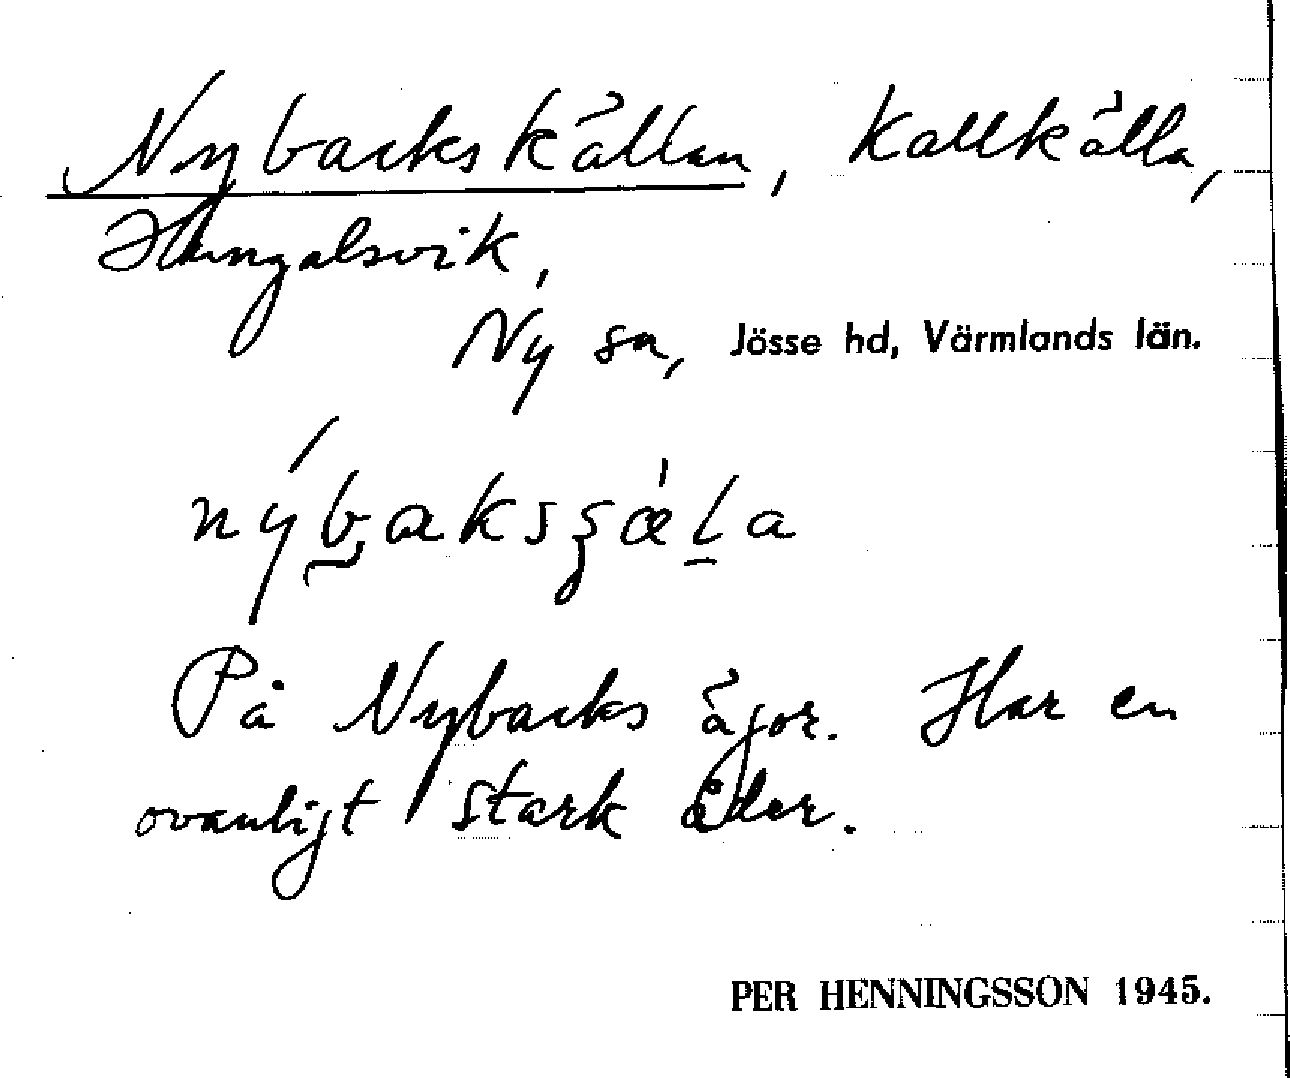 Nybackskällan, Kallkälla,
Hungalsvik,
Ny sn, Jösse hd, Värmlands län.
På Nybacks ägor. Har en
ovanligt stark åder.
PER HENNINGSSON 1945.